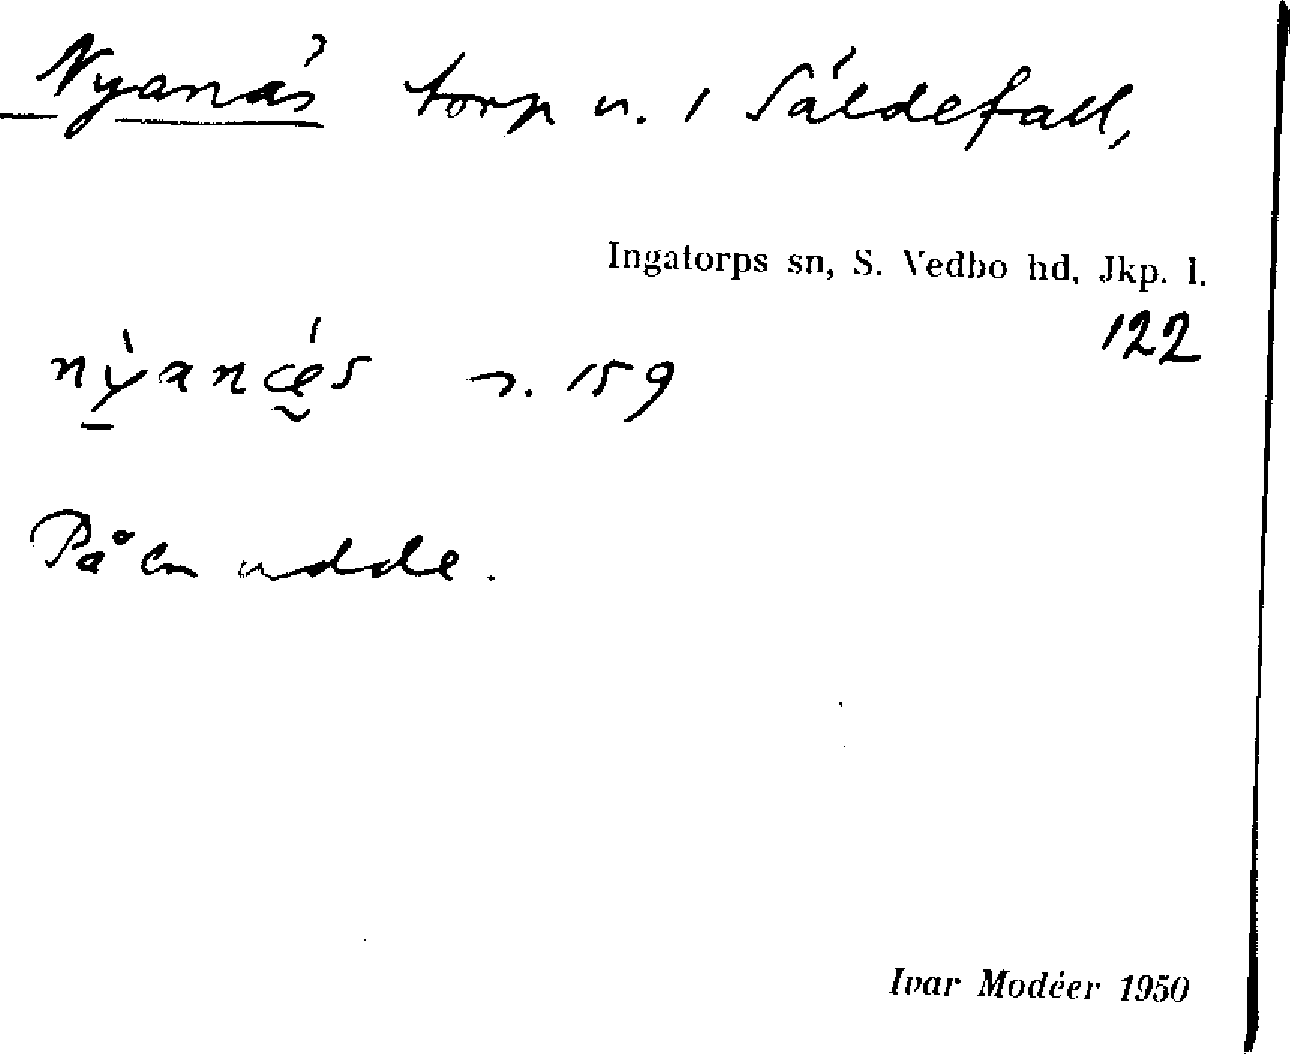 Nyanäs torp u. / Säldefall,
Ingatorps sn, S. Vedbo hd, Jkp. l.
122
nỳanǽs n. 159
På en udde.
Ivar Modéer 1950